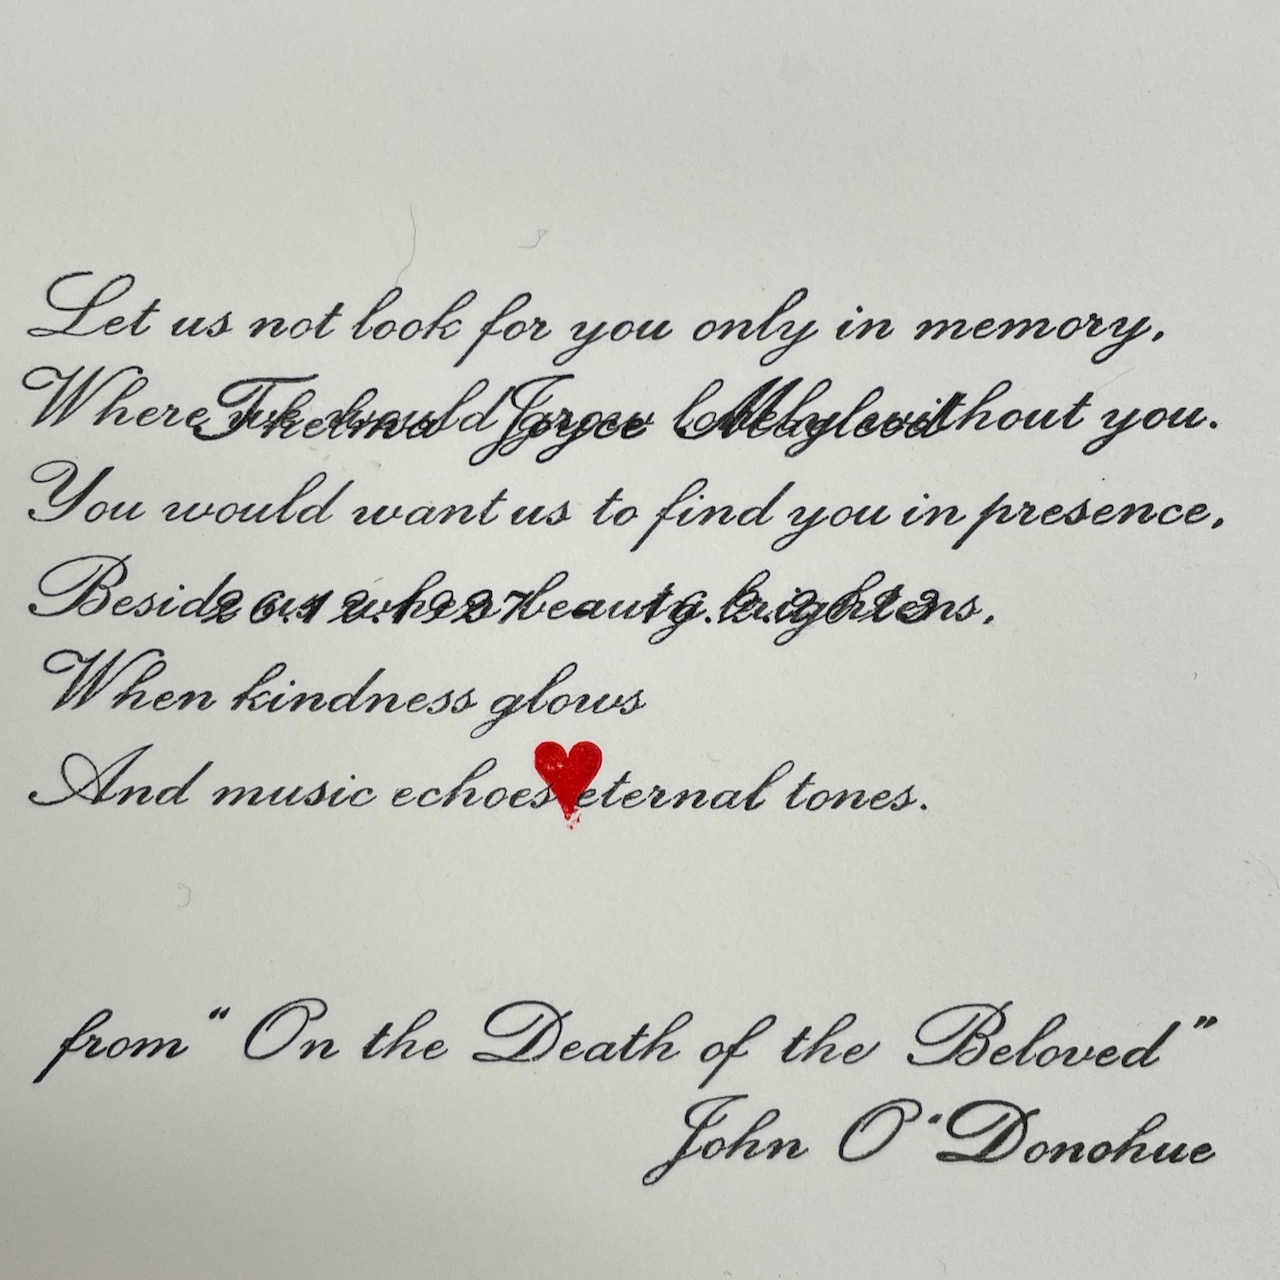 Let us not look for you only in memory,
Where we would grow lonely without you.
Thelma Joyce Macleod
You would want us to find you in presence,
Beside us when beauty brightens,
When kindness glows
And music echoes eternal tones.
from "On the Death of the Beloved"
John O'Donohue